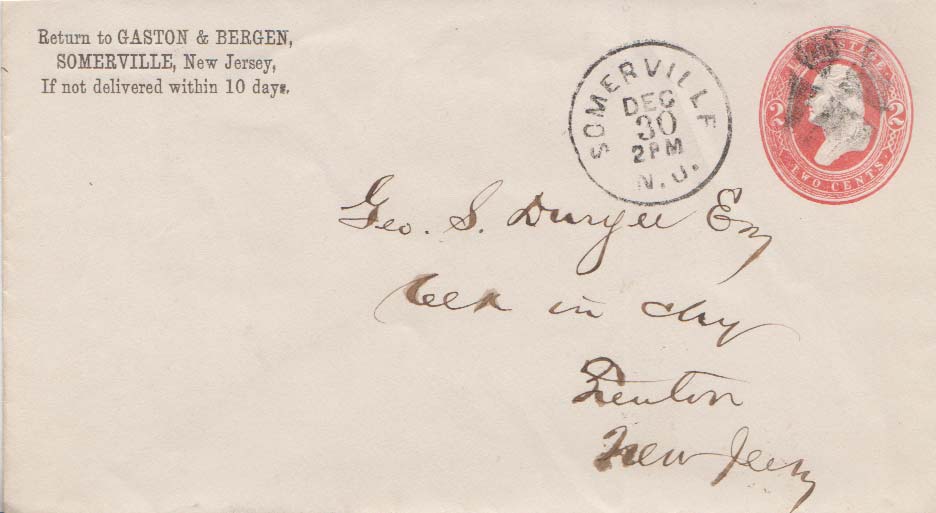 Return to GASTON & BERGEN,
SOMERVILLE, New Jersey,
If not delivered within 10 days.
SOMERVILLE
DEC
30
2 PM
N. J.
2 2
TWO CENTS
Geo. S. Duryee Esq
Clk in Chy
Trenton
New Jersey